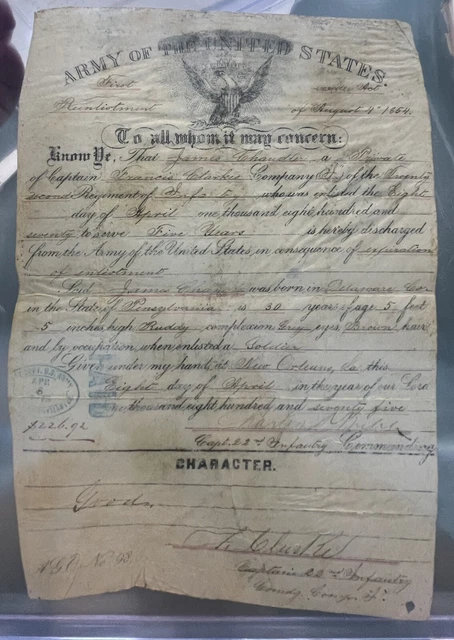 ARMY OF THE UNITED STATES
First under Act
Reenlistment of August 4th 1854.
To all whom it may concern:
Know Ye, That James Chandler a Private
of Captain Francis Clarke's Company of the Twenty
second Regiment of Infantry who was enlisted the Eight
day of April one thousand eight hundred and
seventy to serve Five Years is hereby discharged
from the Army of the United States, in consequence of expiration
of enlistment
Said James Chandler was born in Delaware Co.
in the State of Pennsylvania is 30 years of age 5 feet
5 inches high Ruddy complexion Grey eyes Brown hair
and by occupation when enlisted a Soldier
Given under my hand at New Orleans, La this
Eight day of April in the year of our Lord
one thousand eight hundred and seventy five
APR
$226.92
Capt. 22nd Infantry Commanding
CHARACTER.
Good.
F. Clarke
No 93.
Captain 22nd Infantry
Comdg. Comp.